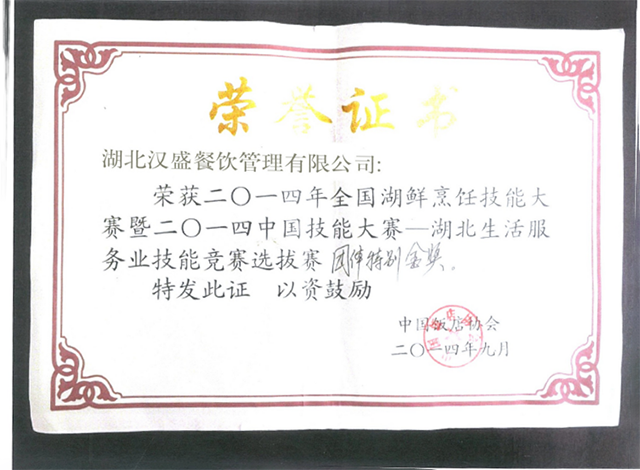 荣誉证书
湖北汉盛餐饮管理有限公司:
荣获二〇一四年全国湖鲜烹饪技能大
赛暨二〇一四中国技能大赛—湖北生活服
务业技能竞赛选拔赛 团体特别金奖.
特发此证 以资鼓励
中国饭店协会
二〇一四年九月